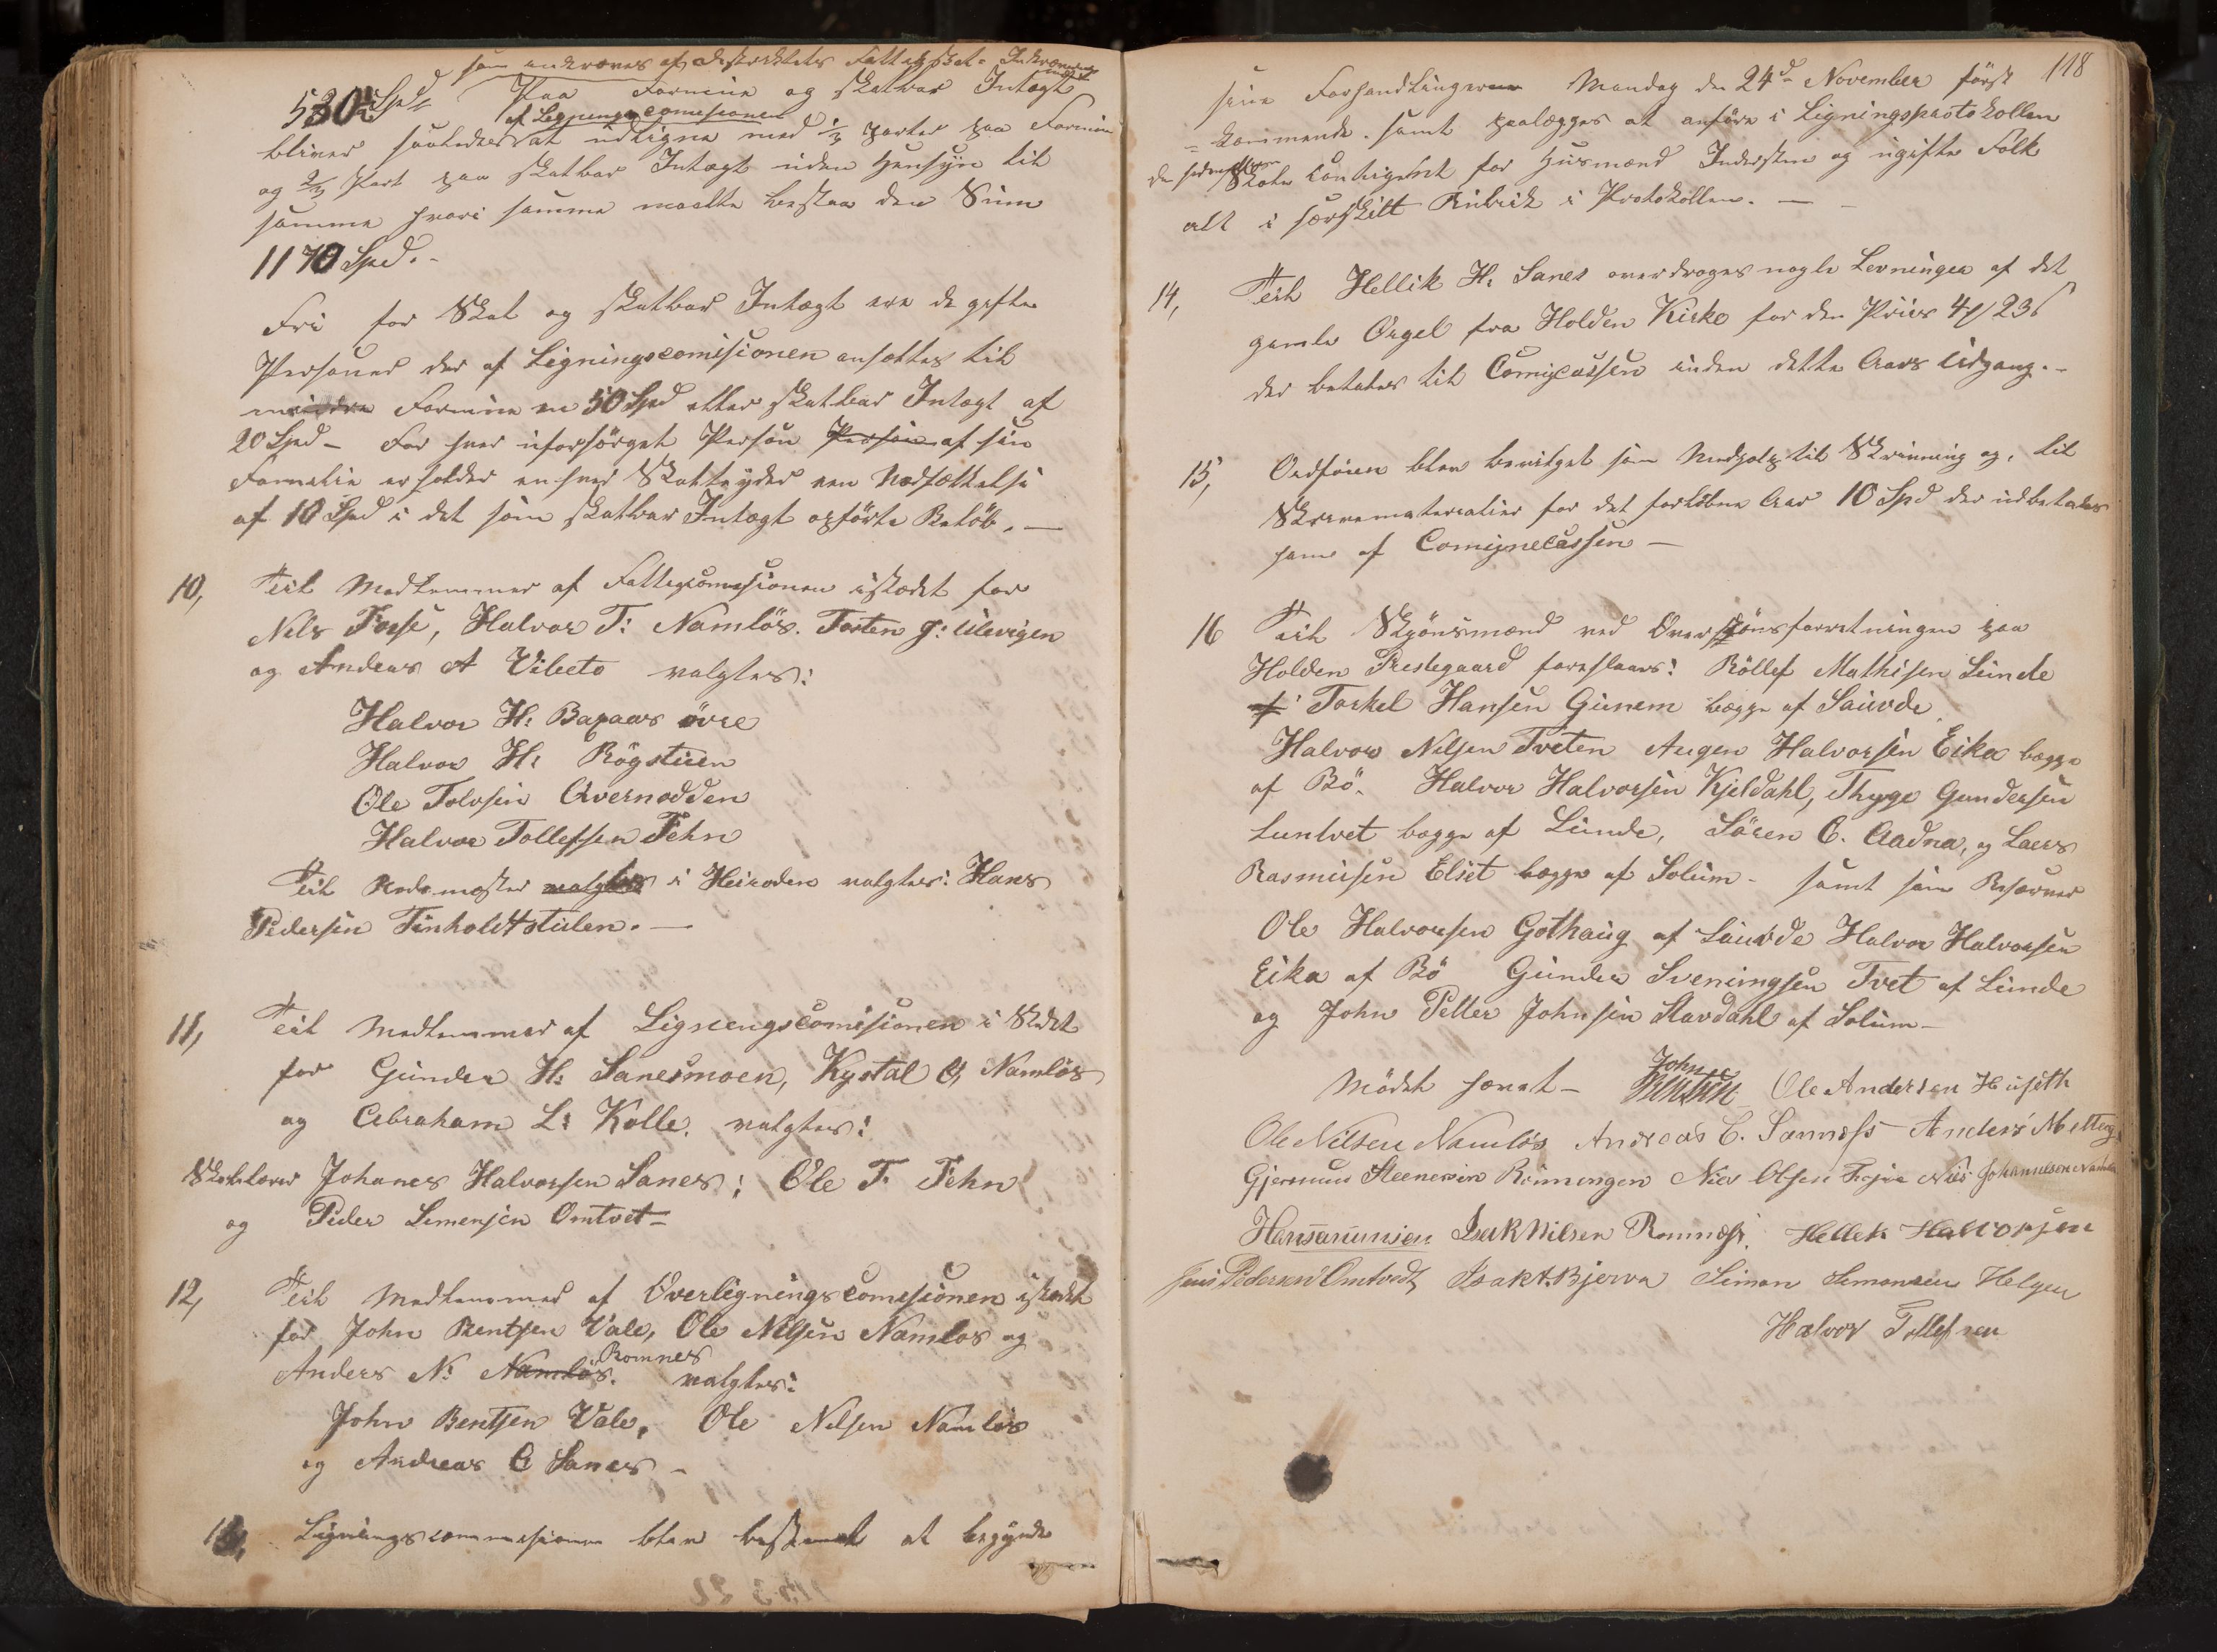 som  af Distriktets Fattigskat.
530 Spd Paa Formue og skatbar Intægt
af Ligningscomisionen
bliver saaledes at udligne med 1/3 parter paa Formue
og 2/3 Part paa skatbar Intægt uden Hensyn til
samme hvori samme maatte bestaa den Sum
1170 Spd.-
Fri for Skat og skatbar Intægt ere de gifte
Personer der af Ligningscomisionen ansættes til
mindre Formue en 50 Spd eller skatbar Intægt af
20 Spd - For hver uforsörget Person Person af sin
Familie erholder enhver Skatteyder een Nedsættelse
af 10 Spd i det som skatbar Intægt opförte Belöb. —
10, Til Medlemmer af Fattigcomisionen istædet for
Nils Forse, Halvor T: Namlös. Torsten J: Ulevigen
og Andreas A Vibeto valgtes:
Halvor H: Bagaas övre
Halvor H: Rögstuen
Ole Tolvsen Qvernodden
Halvor Tollefsen Fehn
Til Rodemester valgtes i Heiroden valgtes: Hans
Pedersen Tinholdtstulen. —
11, Til Medlemmer af Ligningscomisionen i Stedet
for Gunder H: Sanesmoen, Kystal O, Namlös
og Abraham L: Kolle. valgtes:
Skolelærer Johanes Halvorsen Sanes; Ole T. Fehn
og Peder Simensen Omtvet -
12, Til Medlemmer af Overligningscomisionen istedet
for John Bentsen Vale, Ole Nilsen Namlos og
Romnes
Anders N: Namlös. valgtes:
John Bentsen Vale, Ole Nilsen Namlos
og Andreas C Sanes -
13, Ligningscommisionen blev bestemt at begynde
118
sine Forhandlinger Mandag den 24d November först
= kommende. samt paalægges at anföre i Ligningsprotokollen
Skole Contigent for Husmænd Inderster og ugifte Folk
alt i særskilt Rubrik i Protokollen. —
14, Til Hellik H: Sanes overdroges nogle Levninger af det
gamle Orgel fra Holden Kirke for den Priis 4 23
der betales til Comunecassen inden dette Aars Udgang. -
15, Ordfören blev bevilget som Medhjelp til Skrivning og, til
Skrivematerialier for det forlöbne Aar 10 Spd der udbetales
ham af Comunecassen —
16 Til Skjönsmænd ved Overskjönsforretningen paa
Holden Prestegaard foreslaaes: Röllef Mathisen Lunde
Torkel Hansen Gunem begge af Saude
Halvor Nilsen Tveten Augen Halvorsen Eika begge
af Bö. Halvor Halvorsen Kjeldahl, Thyge Gundersen
Luntvet begge af Lunde, Sören C. Aadna, og Laers
Rasmusen Elset begge af Solum - samt som Reserver
Ole Halvorsen Gothaug af Saude Halvor Halvorsen
Eika af Bö Gunder Sveningsen Tvet af Lunde
og John Petter Johnsen Stavdahl af Solum -
Mödet hævet - John Bentsen Ole Andersen Huseth
Ole Nilsen Namlös Andreas C. Sanness Anders N
Gjermund Steenersen Rönningen Niels Olsen  Nils Johannesen
Hans  Isak Nilsen Romnæs. Hellek Halvorsen
Jens Pedersen Omtvedt, Isak A. Bjerva Simon Simonsen Helgen
Halvor Tollefsen